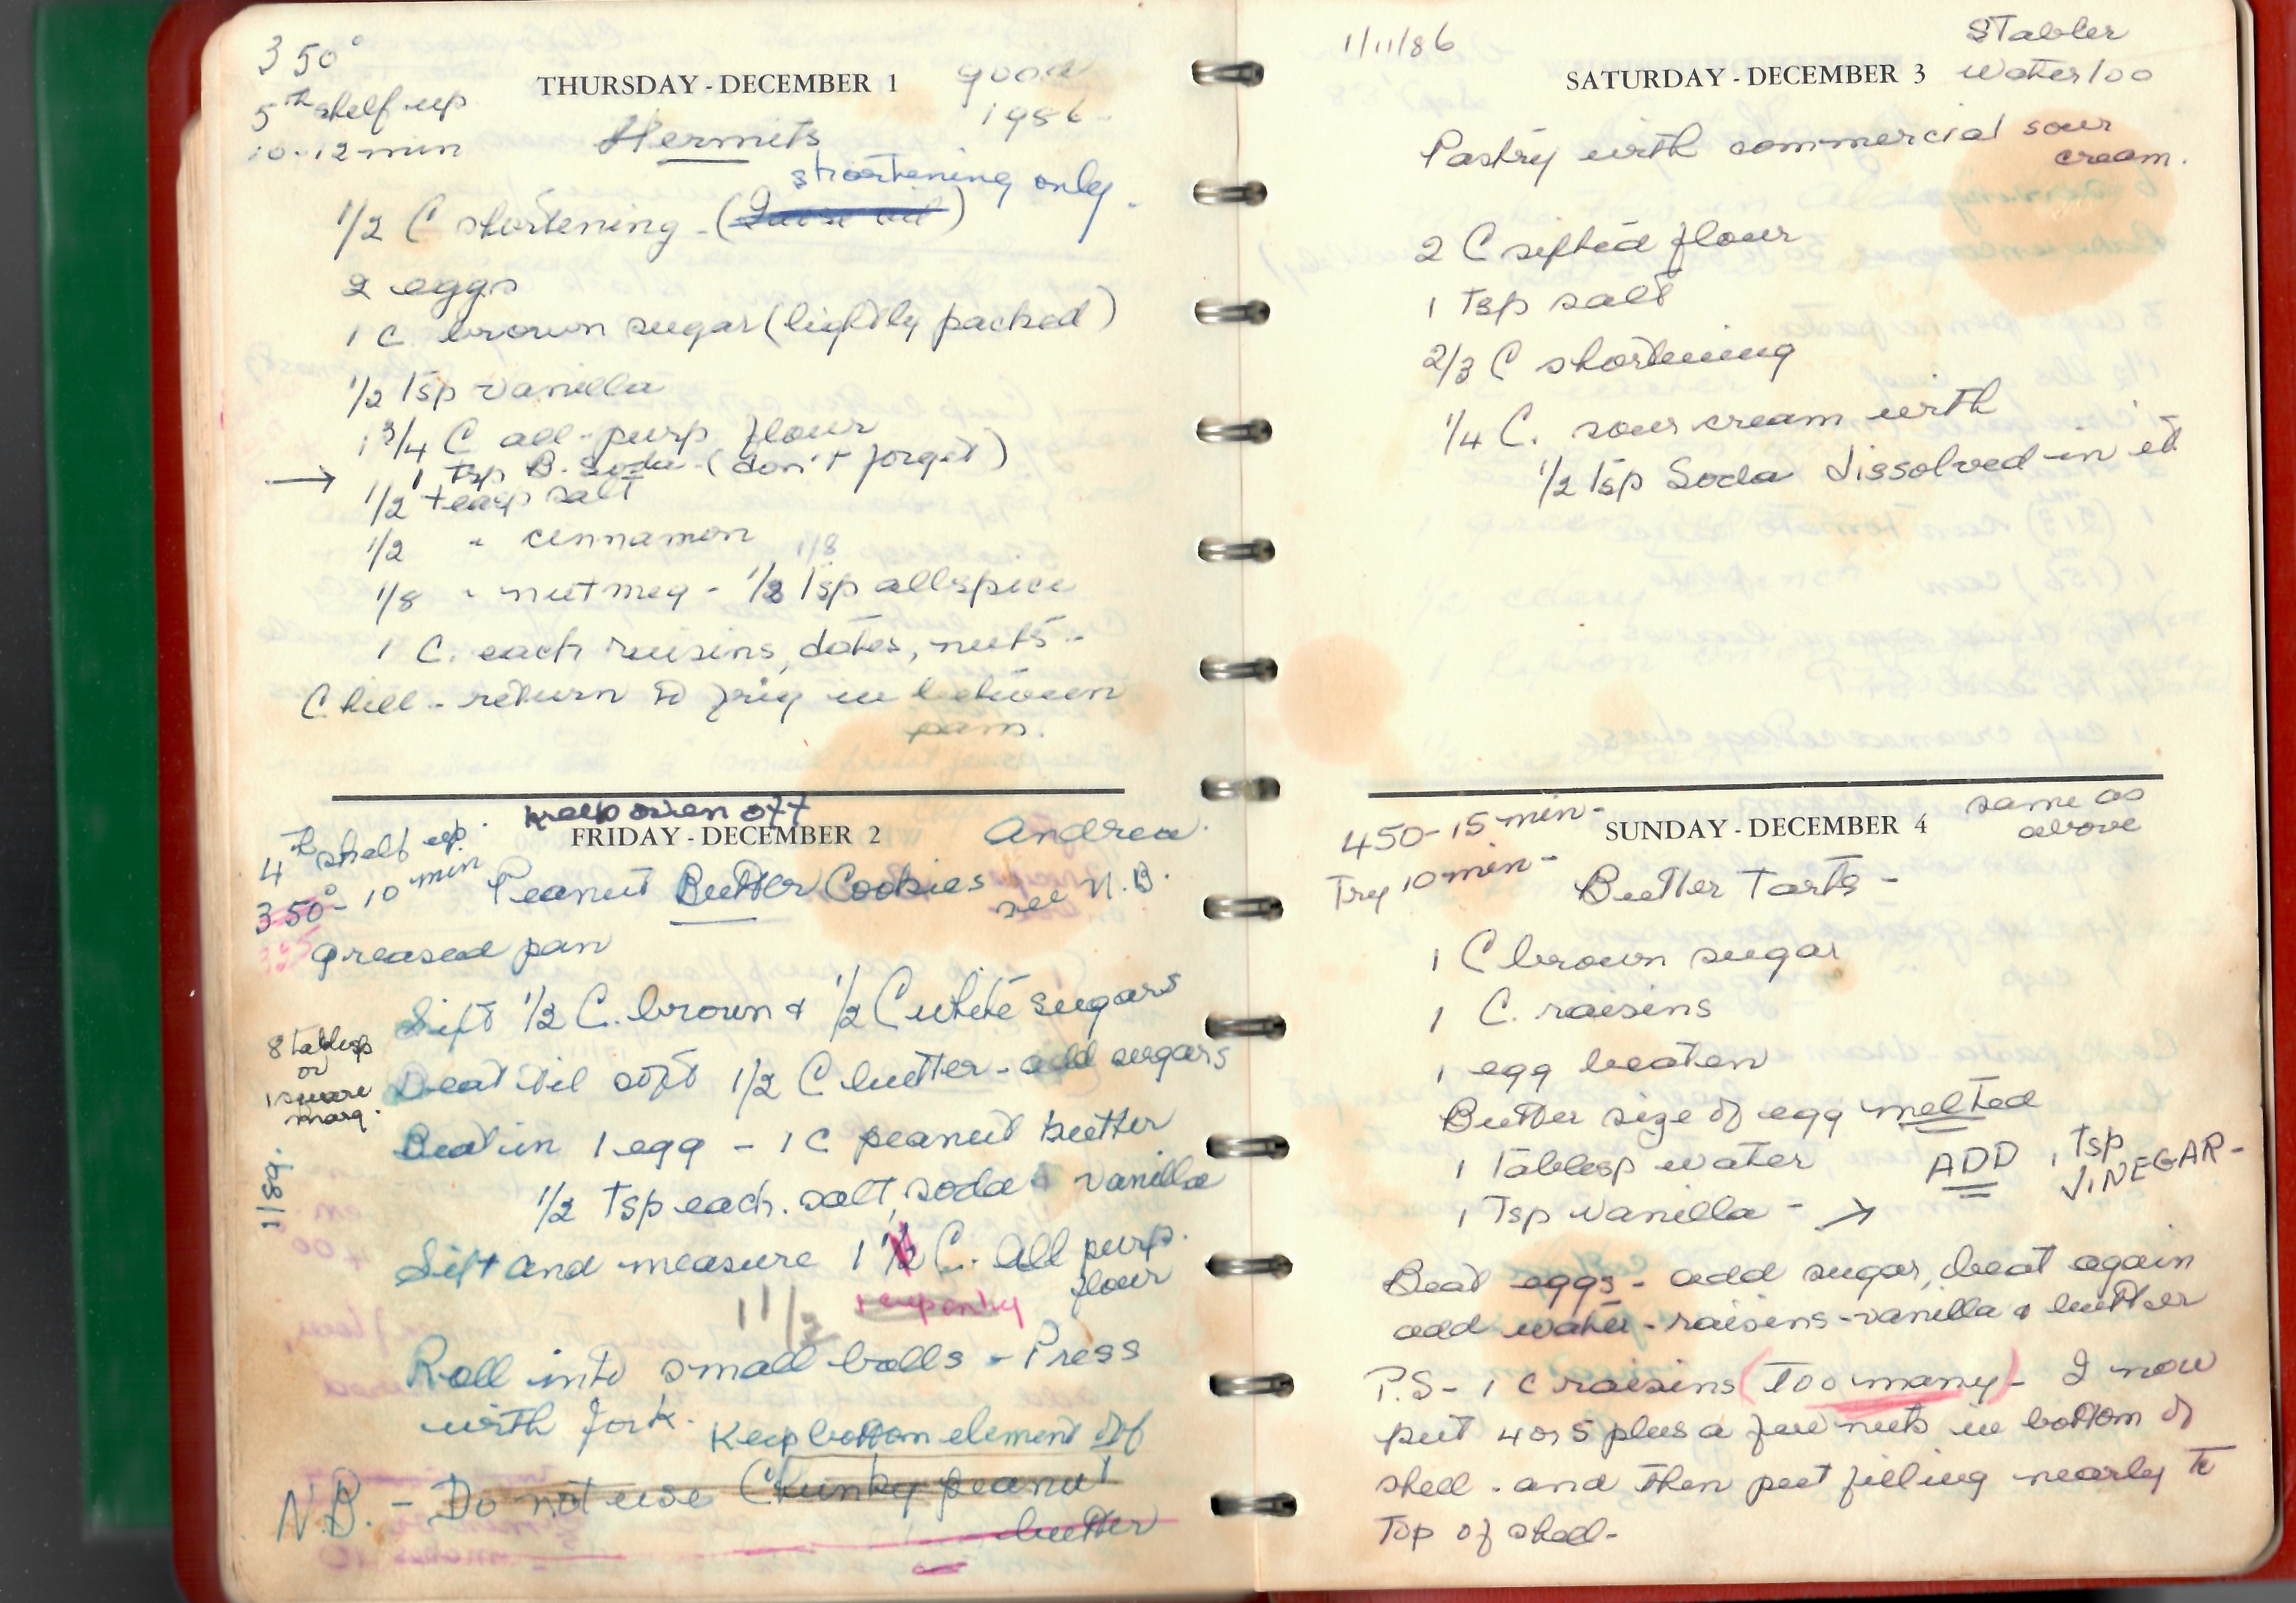 350°
5th shelf up
10-12 min
THURSDAY - DECEMBER 1
good
1986
Hermits
shortening only.
1/2 C shortening - ( )
2 eggs
1 C. brown sugar (lightly packed)
1/2 Tsp vanilla
1 3/4 C all-purp flour
→ 1 Tsp B. Soda - (don't forget)
1/2 teasp salt
1/2 " cinnamon
1/8
1/8 " nutmeg - 1/8 Tsp allspice
1 C. each raisins, dates, nuts -
Chill - return to frig in between
pans.
keep oven off
4th shelf up.
FRIDAY - DECEMBER 2
Andrea.
350° - 10 min
Peanut Butter Cookies
see N.B.
greased pan
Sift 1/2 C. brown & 1/2 C white sugars
8 tablesp
or
1 square
marg.
Beat til soft 1/2 C butter - add sugars
Beat in 1 egg - 1 C peanut butter
1/2 Tsp each. salt, soda & vanilla
1/89.
Sift and measure 1 1/2 C. all purp.
flour
1 cup only
1 1/2
Roll into small balls - Press
with fork.
Keep bottom element off
N.B. - Do not use Chunky peanut
butter
1/11/86
Stabler
Waterloo
SATURDAY - DECEMBER 3
Pastry with commercial sour
cream.
2 C sifted flour
1 Tsp salt
2/3 C shortening
1/4 C. sour cream with
1/2 Tsp Soda dissolved in it
450 - 15 min -
Try 10 min -
SUNDAY - DECEMBER 4
same as
above
Butter Tarts -
1 C brown sugar
1 C. raisins
1 egg beaten
Butter size of egg melted
1 Tablesp water
1 Tsp vanilla - →
ADD 1 tsp
VINEGAR -
Beat eggs - add sugar, beat again
add water - raisins - vanilla & butter
P.S - 1 C raisins (Too many) - I now
put 4 or 5 plus a few nuts in bottom of
shell. and then put filling nearly to
Top of shell -